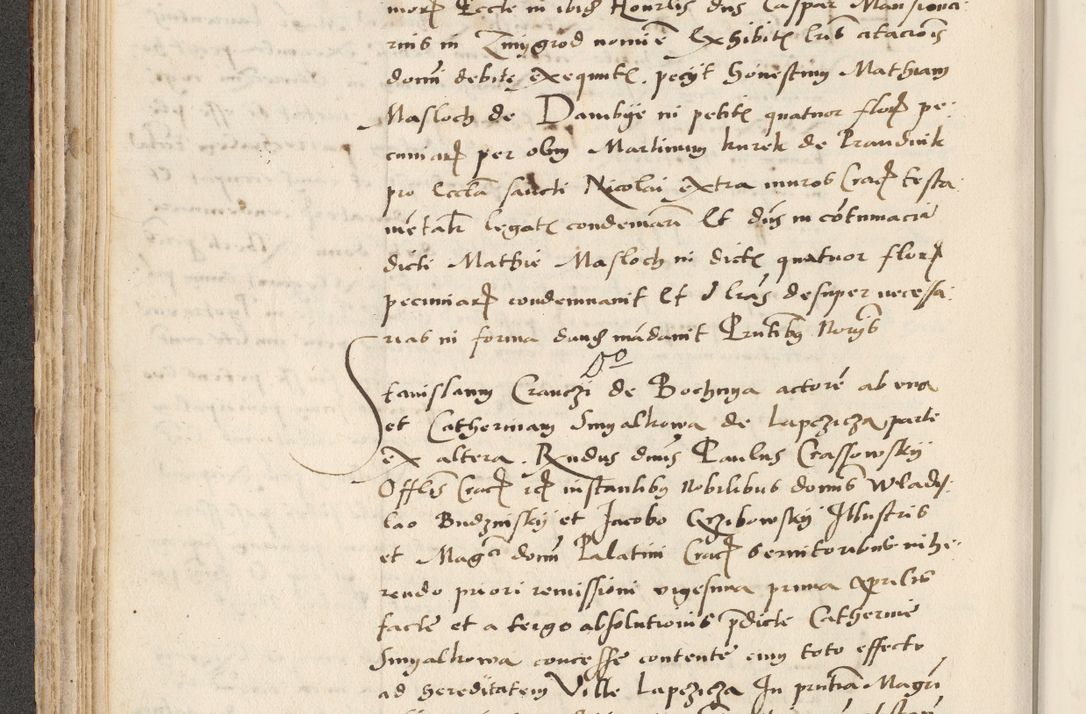 morꝝ Eccle in ibidꝫ Hourlis dnus Caspar Mansiona-
rius in Zmygrod nomie Exhibitꝫ lris citacionis
domi debite exequutꝫ pecyt Honestum Mathiam
Masloch de Dambye in petitꝫ quatuor florꝝ pe-
cuniarꝝ per olim Martinum kurek de Prandnik
pro Eccla sancti Nicolai extra muros Cracꝝ testa-
mentalr legatꝫ condemnari Et dnus in cotumacia
dicti Mathie Masloch in dictꝫ quatuor florꝝ
pecuniarꝝ condemnavit Et lras desuper necessa-
rias in forma mandavit Pntibus
Stanislaum de Bochnya actore ab una
et Catherinam Smyalkowa de Lapczicza parte
ex altera. Rndus dnus Paulus Crassowsky
Offlis Cracꝝ instantibus Nobilibus domis Wladis-
lao Budzinsky et Jacobo Grzibowsky Illustris
et Magci domi Palatini Cracꝝ servitoribus inhe-
rendo priori remissioni vigesima prima Aprilis
facte et a tergo absolutionis pdicte Catherine
Smyalkowa concesse contente cum toto effectu
ad hereditatem Ville Lapczicza In pntiam Magci